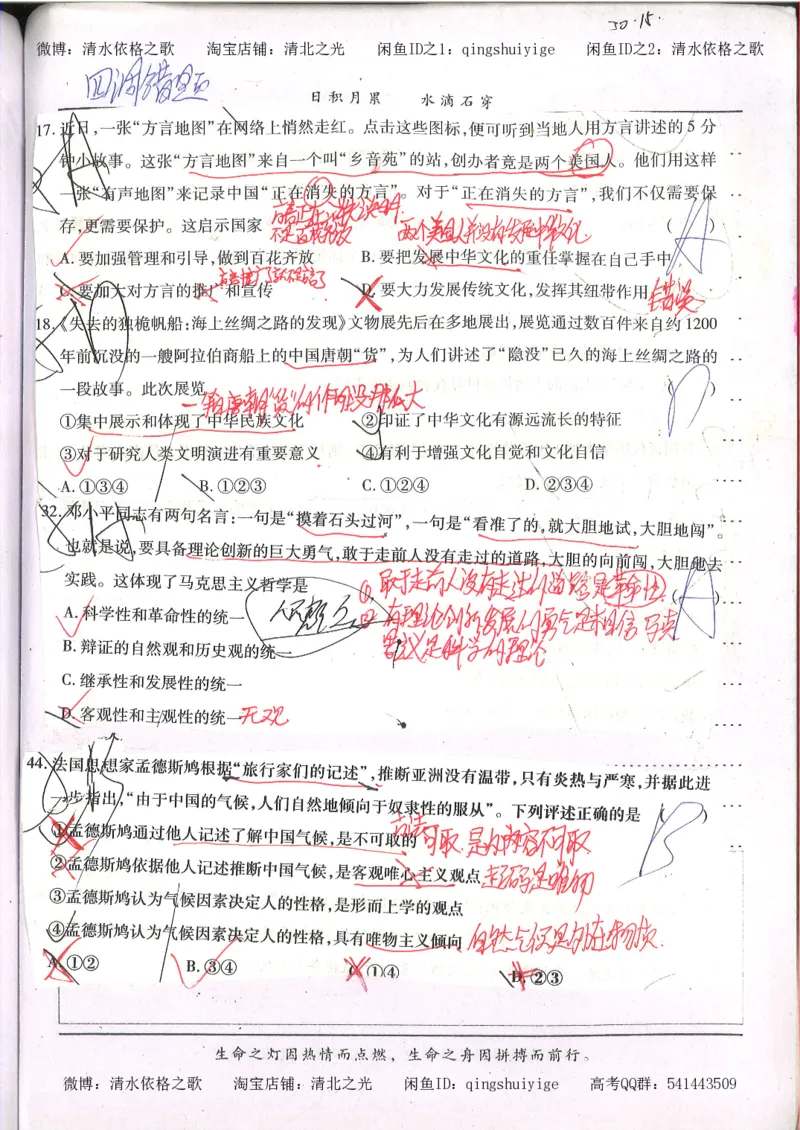 30.15.
微博：清水依格之歌 淘宝店铺：清北之光 闲鱼ID之1：qingshuiyige 闲鱼ID之2：清水依格之歌
四调错题
日积月累 水滴石穿
17.近日，一张“方言地图”在网络上悄然走红。点击这些图标，便可听到当地人用方言讲述的5分
钟小故事。这张“方言地图”来自一个叫“乡音苑”的站，创办者竟是两个美国人。他们用这样
一张“有声地图”来记录中国“正在消失的方言”。对于“正在消失的方言”，我们不仅需要保
存，更需要保护。这启示国家 ( A )
不是百花齐放
A.要加强管理和引导，做到百花齐放 B.要把发展中华文化的重任掌握在自己手中
C.要加大对方言的推广和宣传 D.要大力发展传统文化，发挥其纽带作用 错误
18.《失去的独桅帆船：海上丝绸之路的发现》文物展先后在多地展出，展览通过数百件来自约1200
年前沉没的一艘阿拉伯商船上的中国唐朝“货”，为人们讲述了“隐没”已久的海上丝绸之路的
一段故事。此次展览 ( D )
一艘唐朝“货”的作用没那么大
①集中展示和体现了中华民族文化 ②印证了中华文化有源远流长的特征
③对于研究人类文明演进有重要意义 ④有利于增强文化自觉和文化自信
A.①③④ B.①②③ C.①②④ D.②③④
32.邓小平同志有两句名言：一句是“摸着石头过河”，一句是“看准了的，就大胆地试，大胆地闯”。
也就是说，要具备理论创新的巨大勇气，敢于走前人没有走过的道路，大胆的向前闯，大胆地去
实践。这体现了马克思主义哲学是 ( A )
①敢于走前人没有走过的道路是革命性
A.科学性和革命性的统一
B.辩证的自然观和历史观的统一
C.继承性和发展性的统一
D.客观性和主观性的统一 无观
44.法国思想家孟德斯鸠根据“旅行家们的记述”，推断亚洲没有温带，只有炎热与严寒，并据此进
一步指出，“由于中国的气候，人们自然地倾向于奴隶性的服从”。下列评述正确的是 ( B )
①孟德斯鸠通过他人记述了解中国气候，是不可取的 方法可取 是内容不可取
②孟德斯鸠依据他人记述推断中国气候，是客观唯心主义观点 起码是唯物
③孟德斯鸠认为气候因素决定人的性格，是形而上学的观点
④孟德斯鸠认为气候因素决定人的性格，具有唯物主义倾向
A.①② B.③④ C.①④ D.②③
生命之灯因热情而点燃，生命之舟因拼搏而前行。
微博：清水依格之歌 淘宝店铺：清北之光 闲鱼ID：qingshuiyige 高考QQ群：541443509